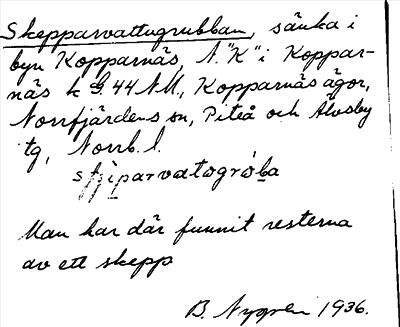 Skepparvattugrubban, sänka i
byn Kopparnäs, N. "K" i Koppar-
näs k G. 44 NM., Kopparnäs ägor,
Norrfjärdens sn, Piteå och Älvsby
tg, Norrb. l.
Man har där funnit resterna
av ett skepp
B. Nygren 1936.